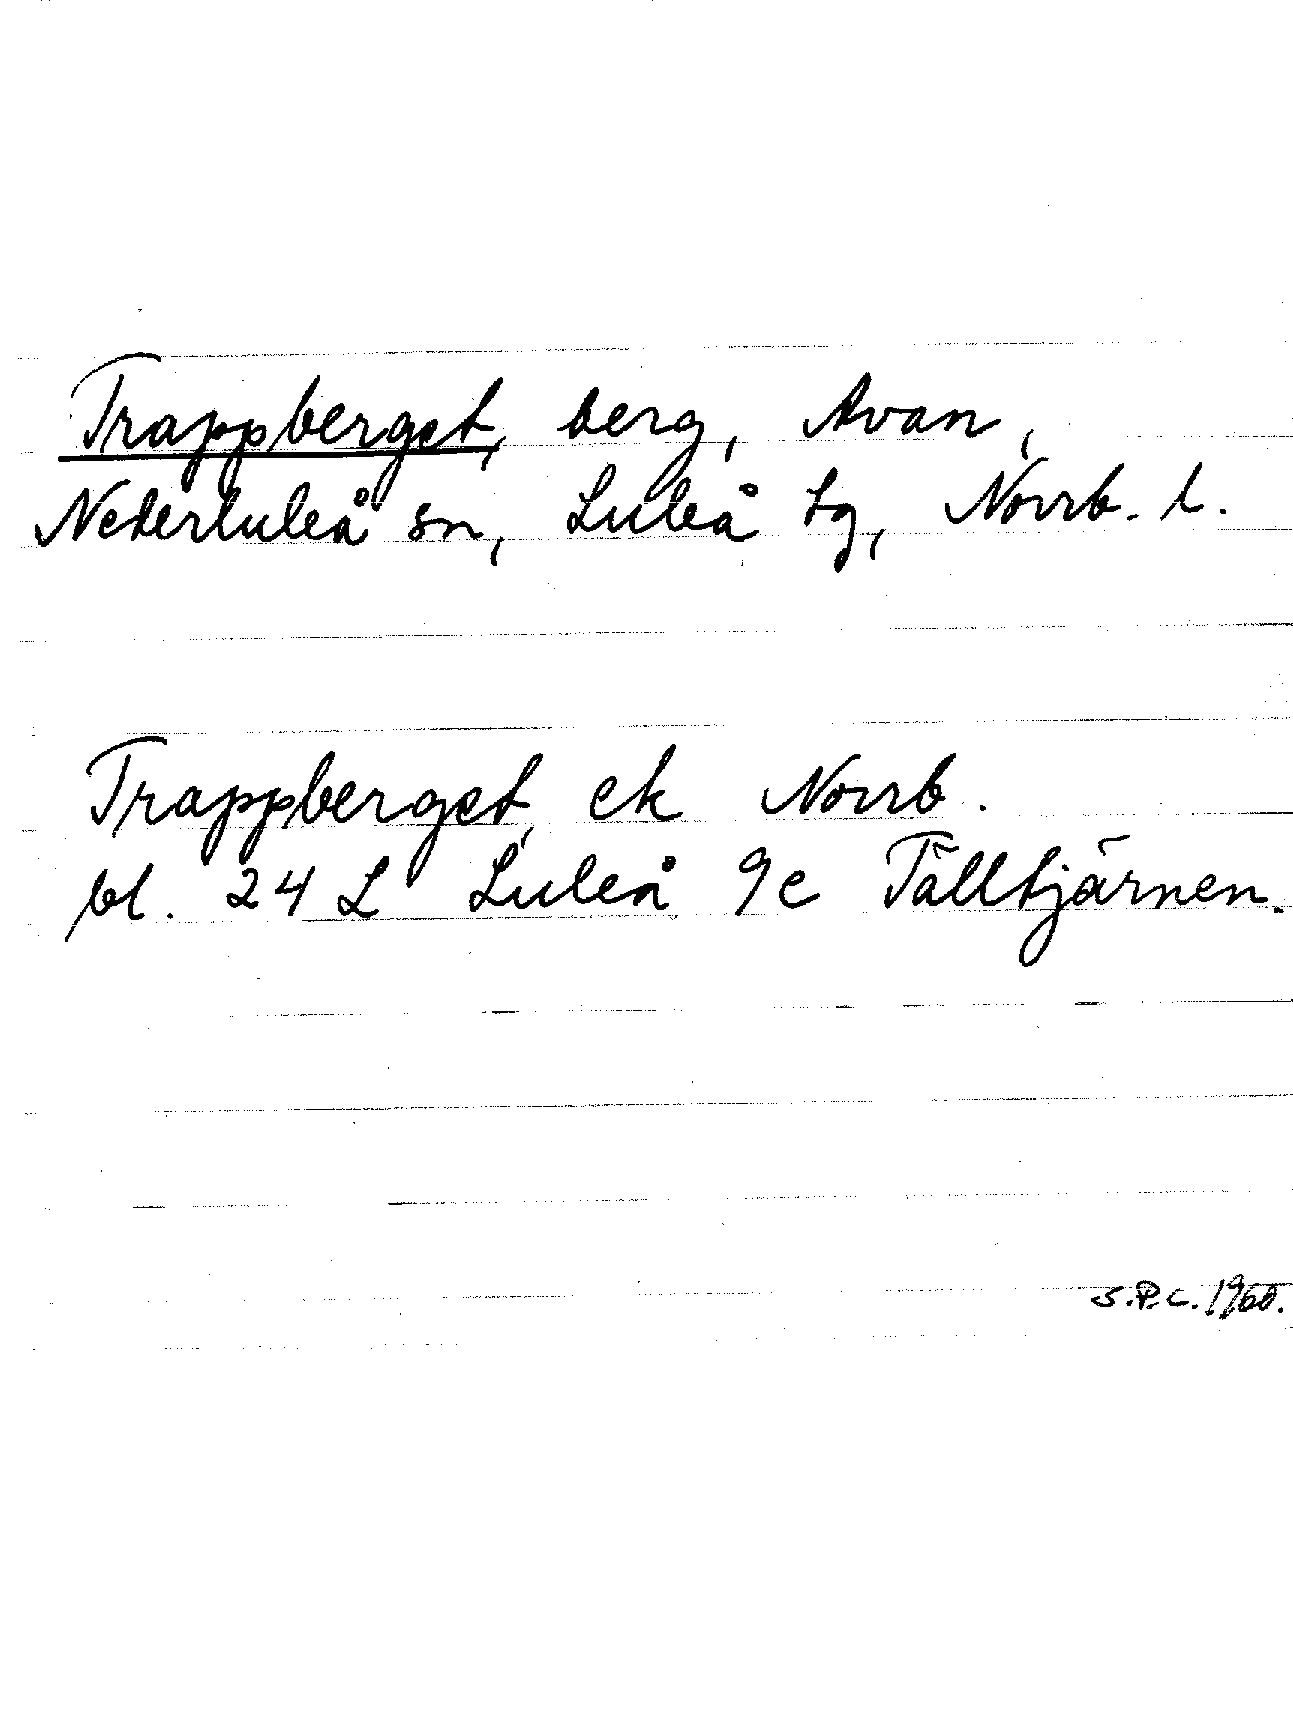 Trappberget, berg, Avan,
Nederluleå sn, Luleå tg, Norrb. l.
Trappberget, ek Norrb.
bl. 24 L Luleå 9c Tälltjärnen.
S.P.C. 1960.